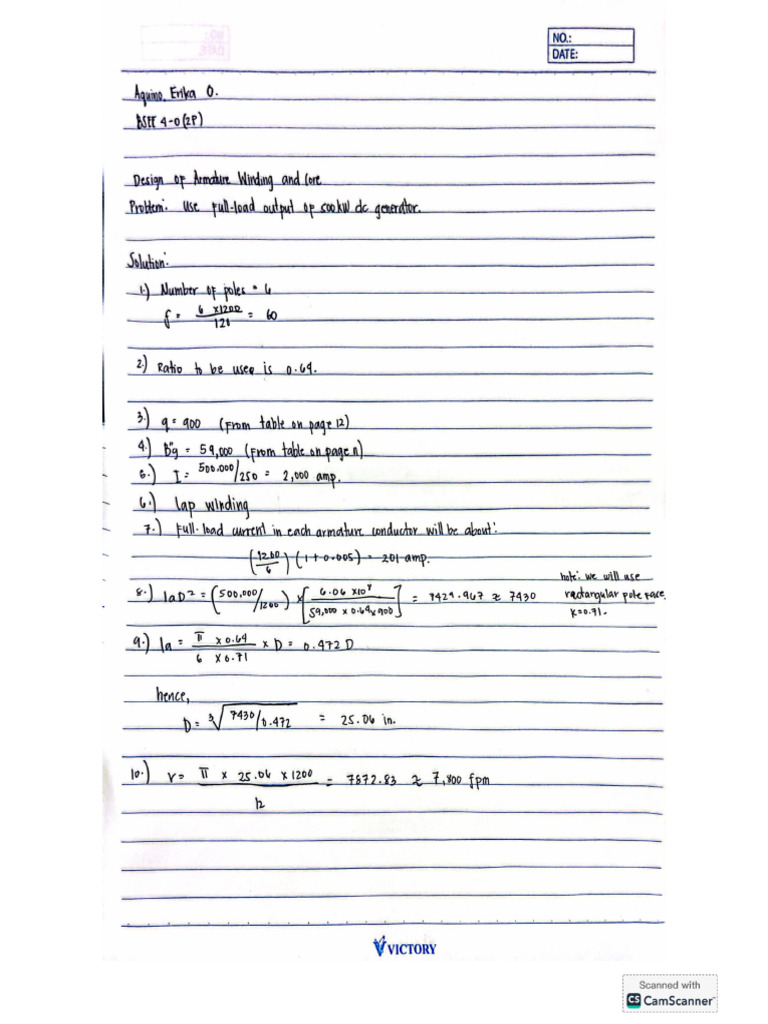 NO.:
DATE:
Aquino, Erika O.
BSEE 4-O (2P)
Design of Armature Winding and Core
Problem: Use full-load output of 500kW dc generator.
Solution:
1.) Number of poles = 6
f = 6 x1200 / 121 = 60
2.) Ratio to be used is 0.64.
3.) q = 900 (From table on page 12)
4.) B"g = 59,000 (From table on page 11)
5.) I = 500.000/250 = 2,000 amp.
6.) Lap winding
7.) Full-load current in each armature conductor will be about:
(1200/6) (1+0.005) = 201 amp.
note: we will use
8.) laD² = (500,000/1200) x [6.06 x10⁸ / 59,000 x 0.64 x 900] = 7429.967 ≈ 7430 rectangular pole face,
k=0.71.
9.) la = π x 0.64 / 6 x 0.71 x D = 0.472 D
hence,
D = ³√7430/0.472 = 25.06 in.
10.) V = π x 25.06 x 1200 / 12 = 7872.83 ≈ 7,800 fpm
VICTORY
Scanned with
CS CamScanner